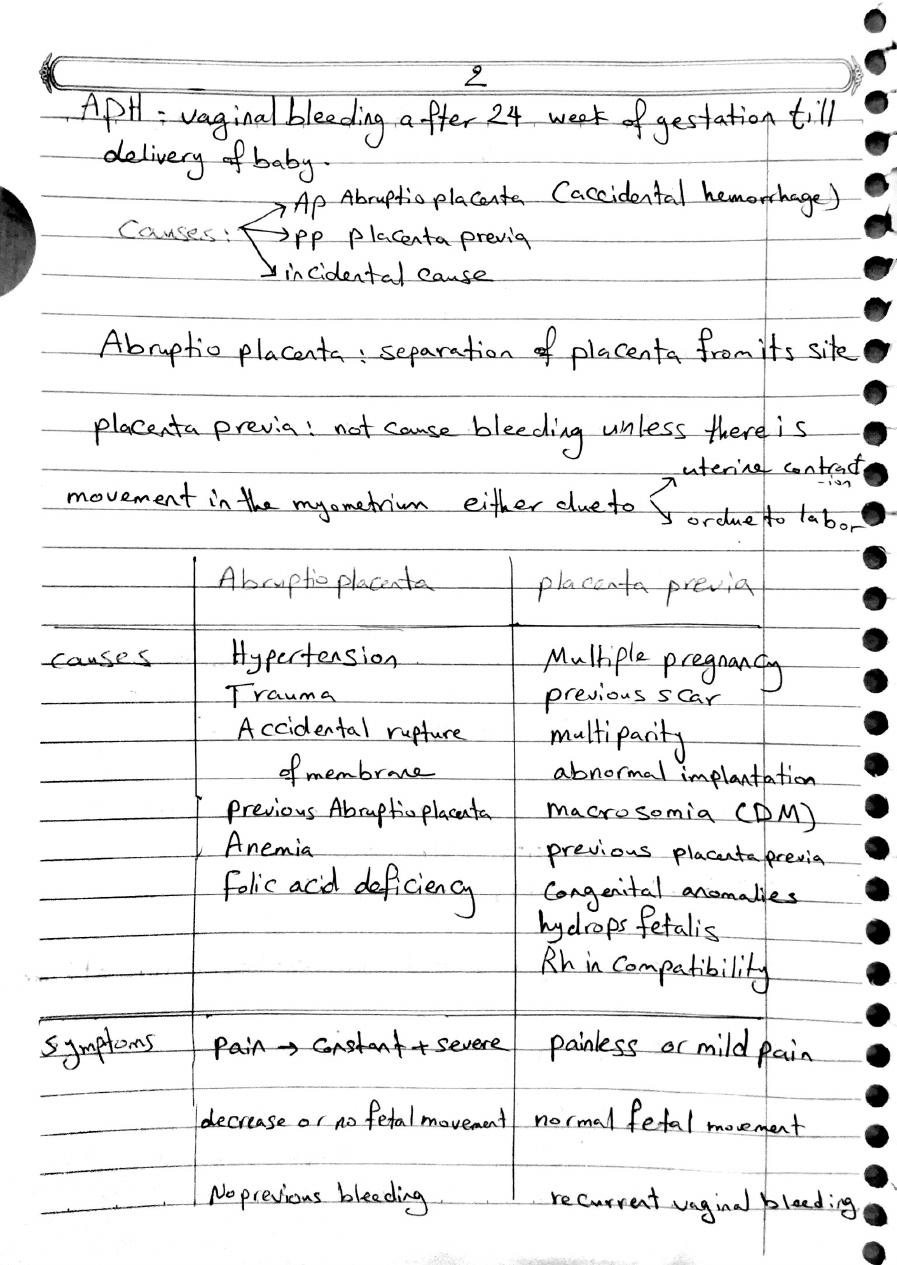 2
APH : vaginal bleeding after 24 week of gestation till
delivery of baby.
Causes :
Ap Abruptio placenta (accidental hemorrhage)
pp placenta previa
incidental cause
Abruptio placenta : separation of placenta from its site
placenta previa : not cause bleeding unless there is
movement in the myometrium either due to
uterine contract
-ion
or due to labor
Abruptio placenta placenta previa
causes Hypertension Multiple pregnancy
Trauma previous scar
Accidental rupture multiparity
of membrane abnormal implantation
previous Abruptio placenta macrosomia (DM)
Anemia previous placenta previa
Folic acid deficiency congenital anomalies
hydrops fetalis
Rh in compatibility
Symptoms pain → constant + severe painless or mild pain
decrease or no fetal movement normal fetal movement
No previous bleeding recurrent vaginal bleeding